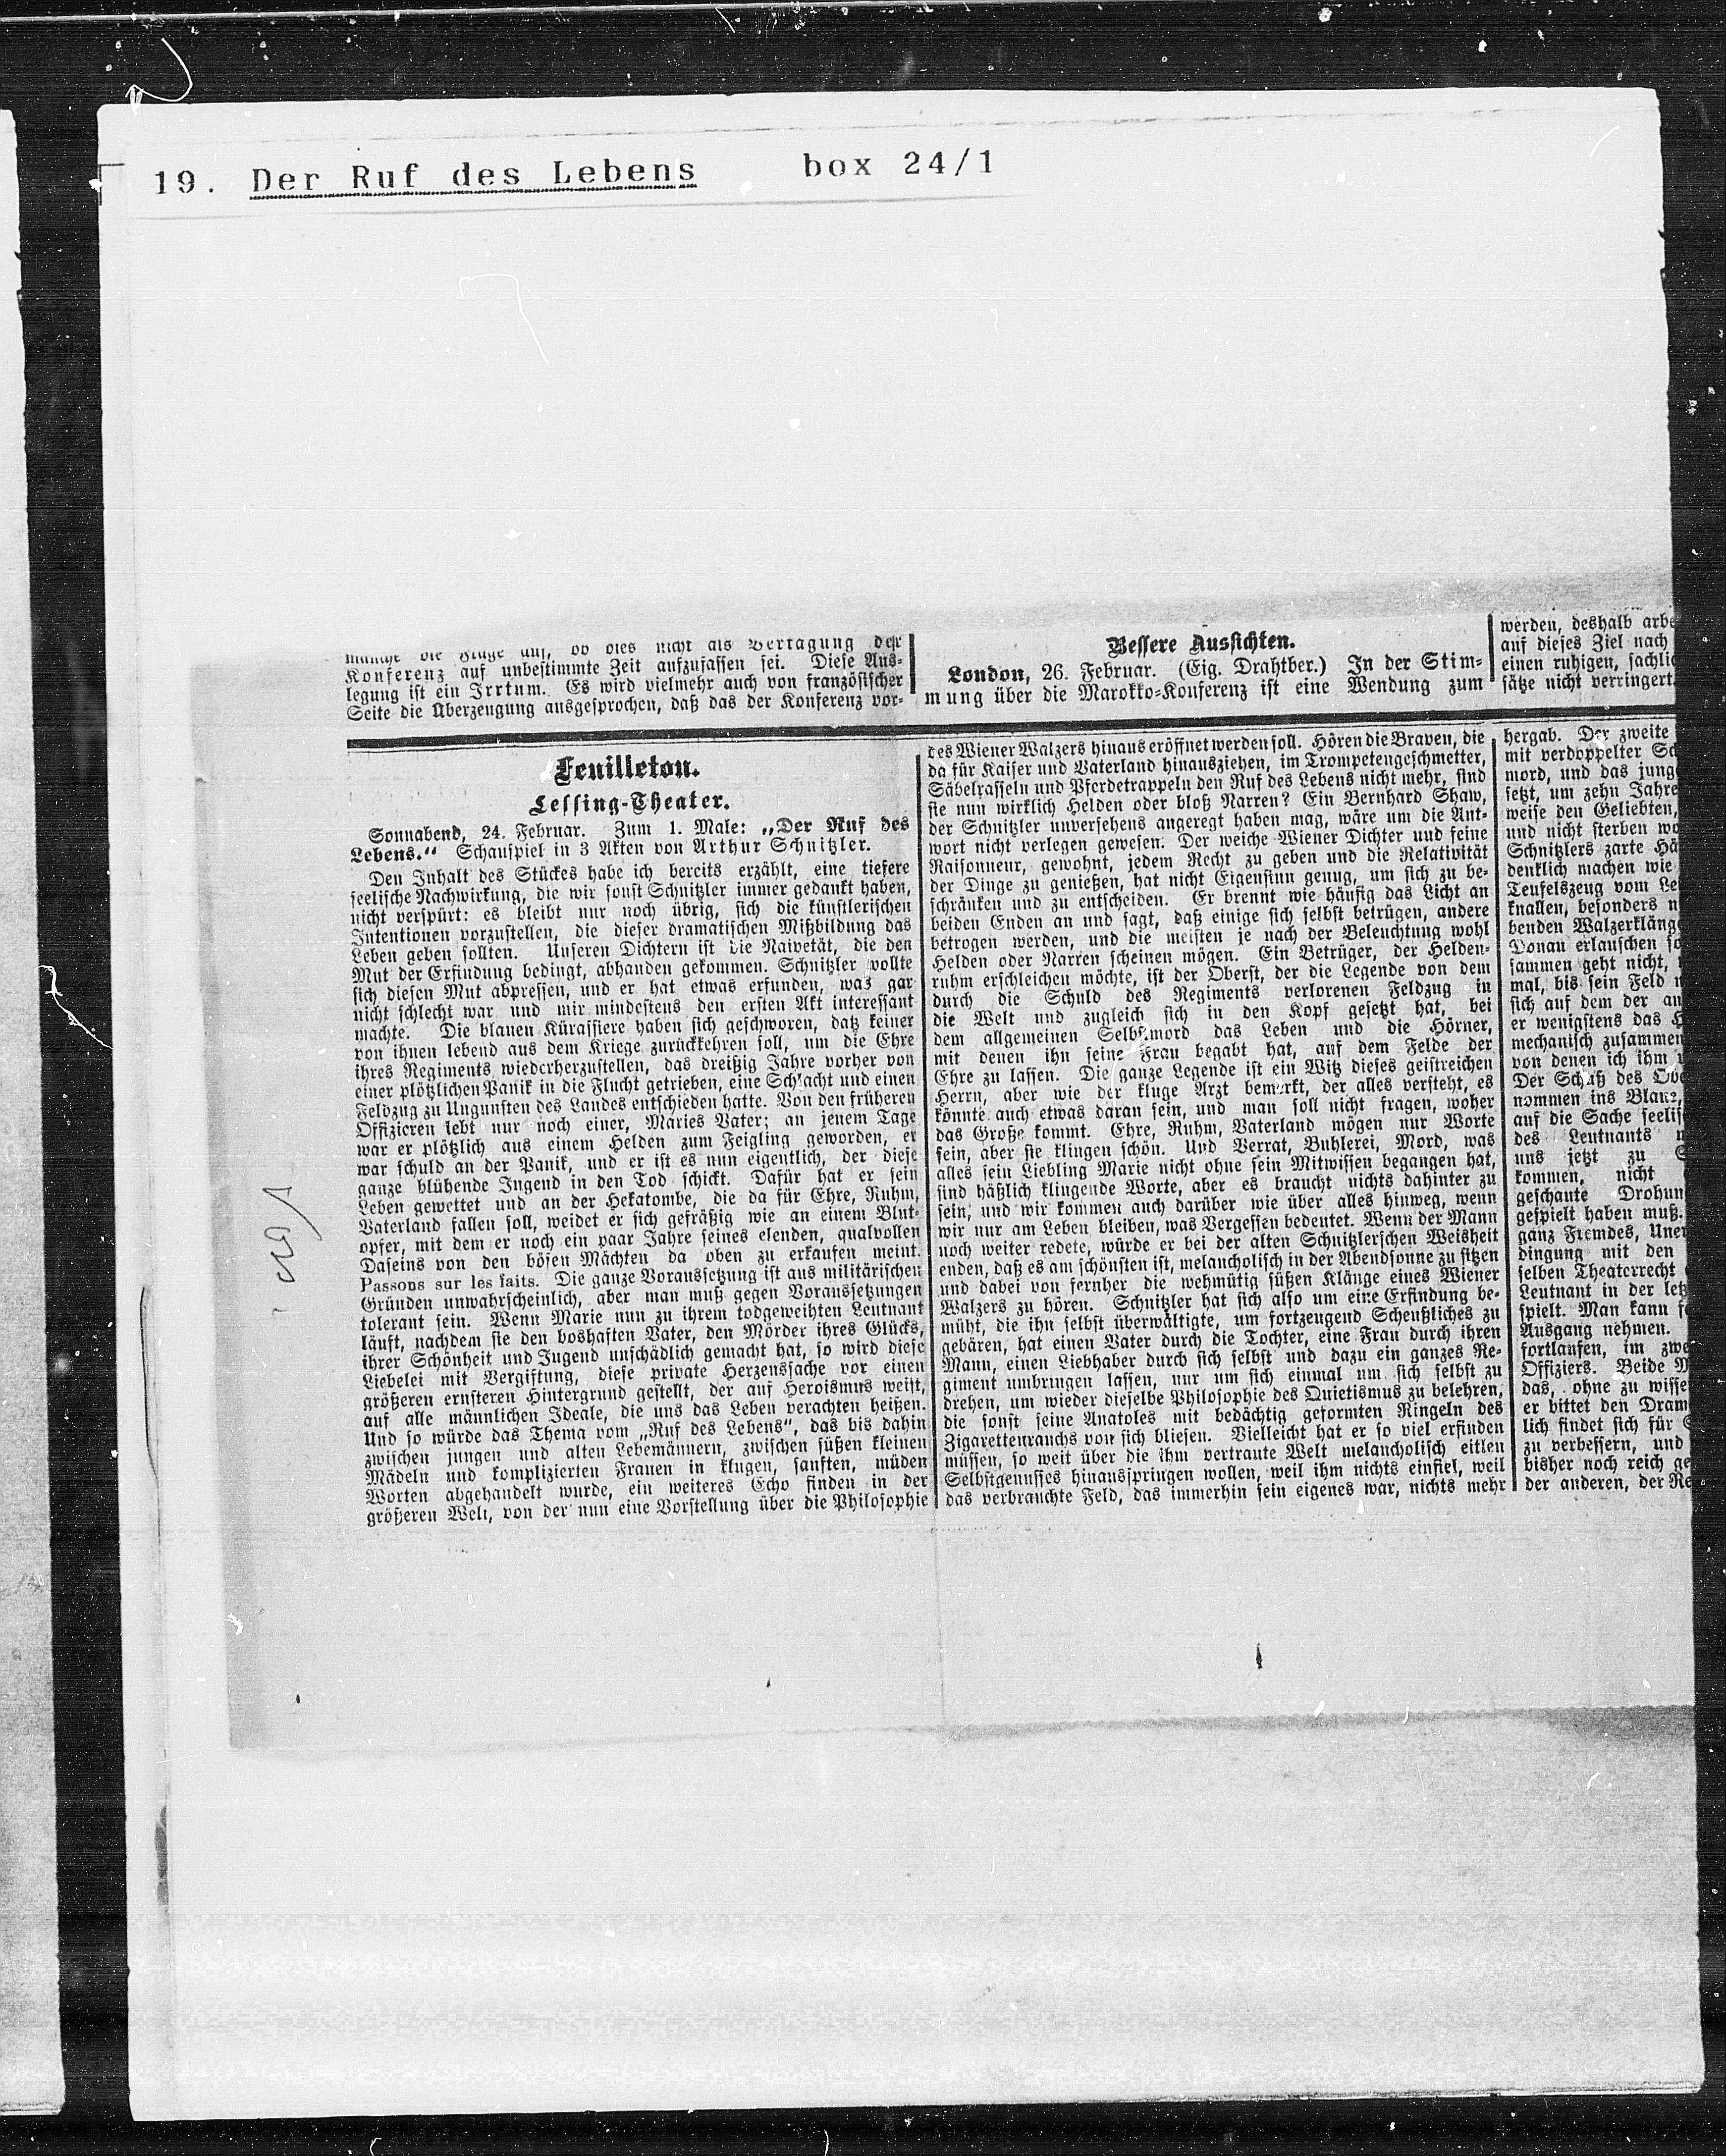 19. Der Ruf des Lebens box 24/1
ob dies nicht als Vertagung der
Konferenz auf unbestimmte Zeit aufzufassen sei. Diese Aus-
legung ist ein Irrtum. Es wird vielmehr auch von französischer
Seite die Überzeugung ausgesprochen, daß das der Konferenz vor-
Bessere Aussichten.
London, 26. Februar. (Eig. Drahtber.) In der Stim-
mung über die Marokko-Konferenz ist eine Wendung zum
werden, deshalb arbe
auf dieses Ziel nach
einen ruhigen, sachlic
sätze nicht verringert.
Feuilleton.
Lessing-Theater.
Sonnabend, 24. Februar. Zum 1. Male: „Der Ruf des
Lebens.“ Schauspiel in 3 Akten von Arthur Schnitzler.
Den Inhalt des Stückes habe ich bereits erzählt, eine tiefere
seelische Nachwirkung, die wir sonst Schnitzler immer gedankt haben,
nicht verspürt: es bleibt nur noch übrig, sich die künstlerischen
Intentionen vorzustellen, die dieser dramatischen Mißbildung das
Leben geben sollten. Unseren Dichtern ist die Naivetät, die den
Mut der Erfindung bedingt, abhanden gekommen. Schnitzler wollte
sich diesen Mut abpressen, und er hat etwas erfunden, was gar
nicht schlecht war und mir mindestens den ersten Akt interessant
machte. Die blauen Kürassiere haben sich geschworen, daß keiner
von ihnen lebend aus dem Kriege zurückkehren soll, um die Ehre
ihres Regiments wiederherzustellen, das dreißig Jahre vorher von
einer plötzlichen Panik in die Flucht getrieben, eine Schlacht und einen
Feldzug zu Ungunsten des Landes entschieden hatte. Von den früheren
Offizieren lebt nur noch einer, Maries Vater; an jenem Tage
war er plötzlich aus einem Helden zum Feigling geworden, er
war schuld an der Panik, und er ist es nun eigentlich, der diese
ganze blühende Jugend in den Tod schickt. Dafür hat er sein
Leben gewettet und an der Hekatombe, die da für Ehre, Ruhm,
Vaterland fallen soll, weidet er sich gefräßig wie an einem Blut-
opfer, mit dem er noch ein paar Jahre seines elenden, qualvollen
Daseins von den bösen Mächten da oben zu erkaufen meint.
Passons sur les faits. Die ganze Voraussetzung ist aus militärischen
Gründen unwahrscheinlich, aber man muß gegen Voraussetzungen
tolerant sein. Wenn Marie nun zu ihrem todgeweihten Leutnant
läuft, nachdem sie den boshaften Vater, den Mörder ihres Glücks,
ihrer Schönheit und Jugend unschädlich gemacht hat, so wird diese
Liebelei mit Vergiftung, diese private Herzenssache vor einen
größeren ernsteren Hintergrund gestellt, der auf Heroismus weist,
auf alle männlichen Ideale, die uns das Leben verachten heißen.
Und so würde das Thema vom „Ruf des Lebens“, das bis dahin
zwischen jungen und alten Lebemännern, zwischen süßen kleinen
Mädeln und komplizierten Frauen in klugen, sanften, müden
Worten abgehandelt wurde, ein weiteres Echo finden in der
größeren Welt, von der nun eine Vorstellung über die Philosophie
des Wiener Walzers hinaus eröffnet werden soll. Hören die Braven, die
da für Kaiser und Vaterland hinausziehen, im Trompetengeschmetter,
Säbelrasseln und Pferdetrappeln den Ruf des Lebens nicht mehr, sind
sie nun wirklich Helden oder bloß Narren? Ein Bernhard Shaw,
der Schnitzler unversehens angeregt haben mag, wäre um die Ant-
wort nicht verlegen gewesen. Der weiche Wiener Dichter und feine
Raisonneur, gewohnt, jedem Recht zu geben und die Relativität
der Dinge zu genießen, hat nicht Eigensinn genug, um sich zu be-
schränken und zu entscheiden. Er brennt wie häufig das Licht an
beiden Enden an und sagt, daß einige sich selbst betrügen, andere
betrogen werden, und die meisten je nach der Beleuchtung wohl
Helden oder Narren scheinen mögen. Ein Betrüger, der Helden-
ruhm erschleichen möchte, ist der Oberst, der die Legende von dem
durch die Schuld des Regiments verlorenen Feldzug in
die Welt und zugleich sich in den Kopf gesetzt hat, bei
dem allgemeinen Selbstmord das Leben und die Hörner,
mit denen ihn seine Frau begabt hat, auf dem Felde der
Ehre zu lassen. Die ganze Legende ist ein Witz dieses geistreichen
Herrn, aber wie der kluge Arzt bemerkt, der alles versteht, es
könnte auch etwas daran sein, und man soll nicht fragen, woher
das Große kommt. Ehre, Ruhm, Vaterland mögen nur Worte
sein, aber sie klingen schön. Und Verrat, Buhlerei, Mord, was
alles sein Liebling Marie nicht ohne sein Mitwissen begangen hat,
sind häßlich klingende Worte, aber es braucht nichts dahinter zu
sein, und wir kommen auch darüber wie über alles hinweg, wenn
wir nur am Leben bleiben, was Vergessen bedeutet. Wenn der Mann
noch weiter redete, würde er bei der alten Schnitzlerschen Weisheit
enden, daß es am schönsten ist, melancholisch in der Abendsonne zu sitzen
und dabei von fernher die wehmütig süßen Klänge eines Wiener
Walzers zu hören. Schnitzler hat sich also um eine Erfindung be-
müht, die ihn selbst überwältigte, um fortzeugend Scheußliches zu
gebären, hat einen Vater durch die Tochter, eine Frau durch ihren
Mann, einen Liebhaber durch sich selbst und dazu ein ganzes Re-
giment umbringen lassen, nur um sich einmal um sich selbst zu
drehen, um wieder dieselbe Philosophie des Quietismus zu belehren,
die sonst seine Anatoles mit bedächtig geformten Ringeln des
Zigarettenrauchs von sich bliesen. Vielleicht hat er so viel erfinden
müssen, so weit über die ihm vertraute Welt melancholisch eitlen
Selbstgenusses hinausspringen wollen, weil ihm nichts einfiel, weil
das verbrauchte Feld, das immerhin sein eigenes war, nichts mehr
hergab. Der zweite
mit verdoppelter Sch
mord, und das jung
setzt, um zehn Jahre
weise den Geliebten,
und nicht sterben wo
Schnitzlers zarte Hä
denklich machen wie
Teufelszeug vom Le
knallen, besonders n
benden Walzerkläng
Donau erlauschen so
sammen geht nicht,
mal, bis sein Feld
sich auf dem der an
er wenigstens das H
mechanisch zusammen
von denen ich ihm
Der Schuß des Obe
nommen ins Blaue,
auf die Sache seelis
des Leutnants
uns jetzt zu
kommen, nicht
geschaute Drohun
gespielt haben muß.
ganz Fremdes, Uner
dingung mit den
selben Theaterrecht
Leutnant in der letz
spielt. Man kann
Ausgang nehmen.
fortlaufen, im zwe
Offiziers. Beide M
das, ohne zu wisse
er bittet den Dram
lich findet sich für
zu verbessern, und
bisher noch reich ge
der anderen, der Re